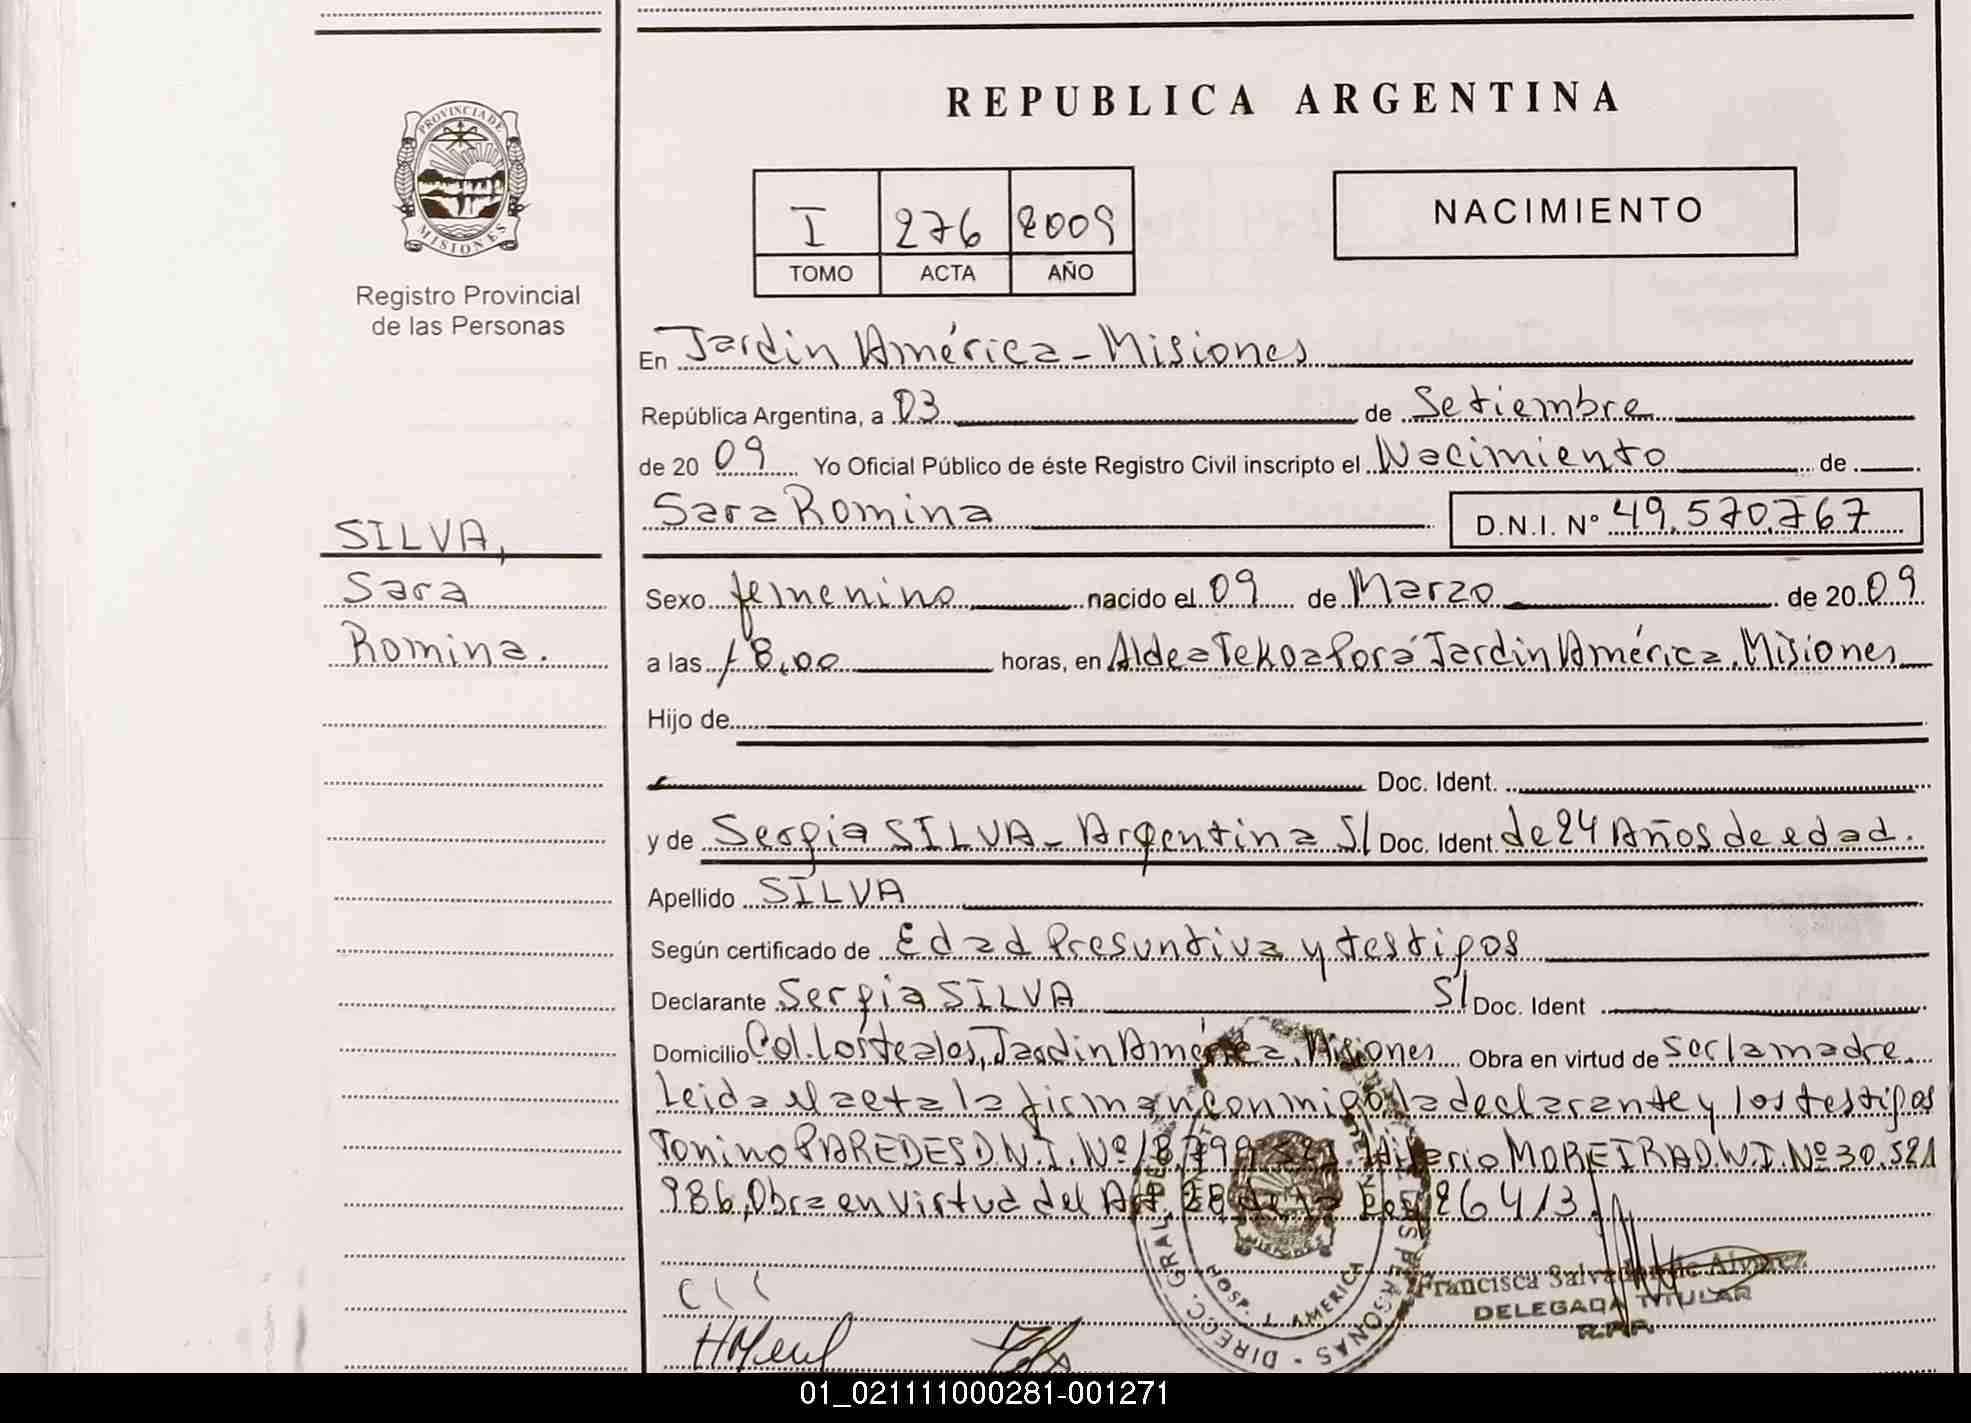 REPUBLICA ARGENTINA
PROVINCIA DE
MISIONES
Registro Provincial
de las Personas
I 276 2009
TOMO ACTA AÑO
NACIMIENTO
En Jardin América - Misiones
República Argentina, a 03 de Setiembre
de 20 09 Yo Oficial Público de éste Registro Civil inscripto el Nacimiento de
Sara Romina D.N.I. Nº 49.570.767
SILVA,
Sara
Romina.
Sexo femenino nacido el 09 de Marzo de 20 09
a las 18,00 horas, en Aldea Tekoa Porá Jardin América. Misiones
Hijo de
Doc. Ident.
y de Sergia SILVA - Argentina S/ Doc. Ident. de 24 Años de edad.
Apellido SILVA
Según certificado de Edad Presuntiva y testigos
Declarante Sergia SILVA S/ Doc. Ident
Domicilio Col. Los tealos, Jardin América. Misiones Obra en virtud de ser la madre.
Leida el acta la firman conmigo la declarante y los testigos
Tonino PAREDES D.N.I. Nº 18.799 MOREIRA D.N.I. Nº 30.521
986, Obra en virtud del Art. 28 de la Ley 26413.
DIRECC. GRAL. DE PERSONAS
HOSP. J. AMERICA
Francisca Salvador de Alvarez
DELEGADA TITULAR
R.P.P.
01_021111000281-001271